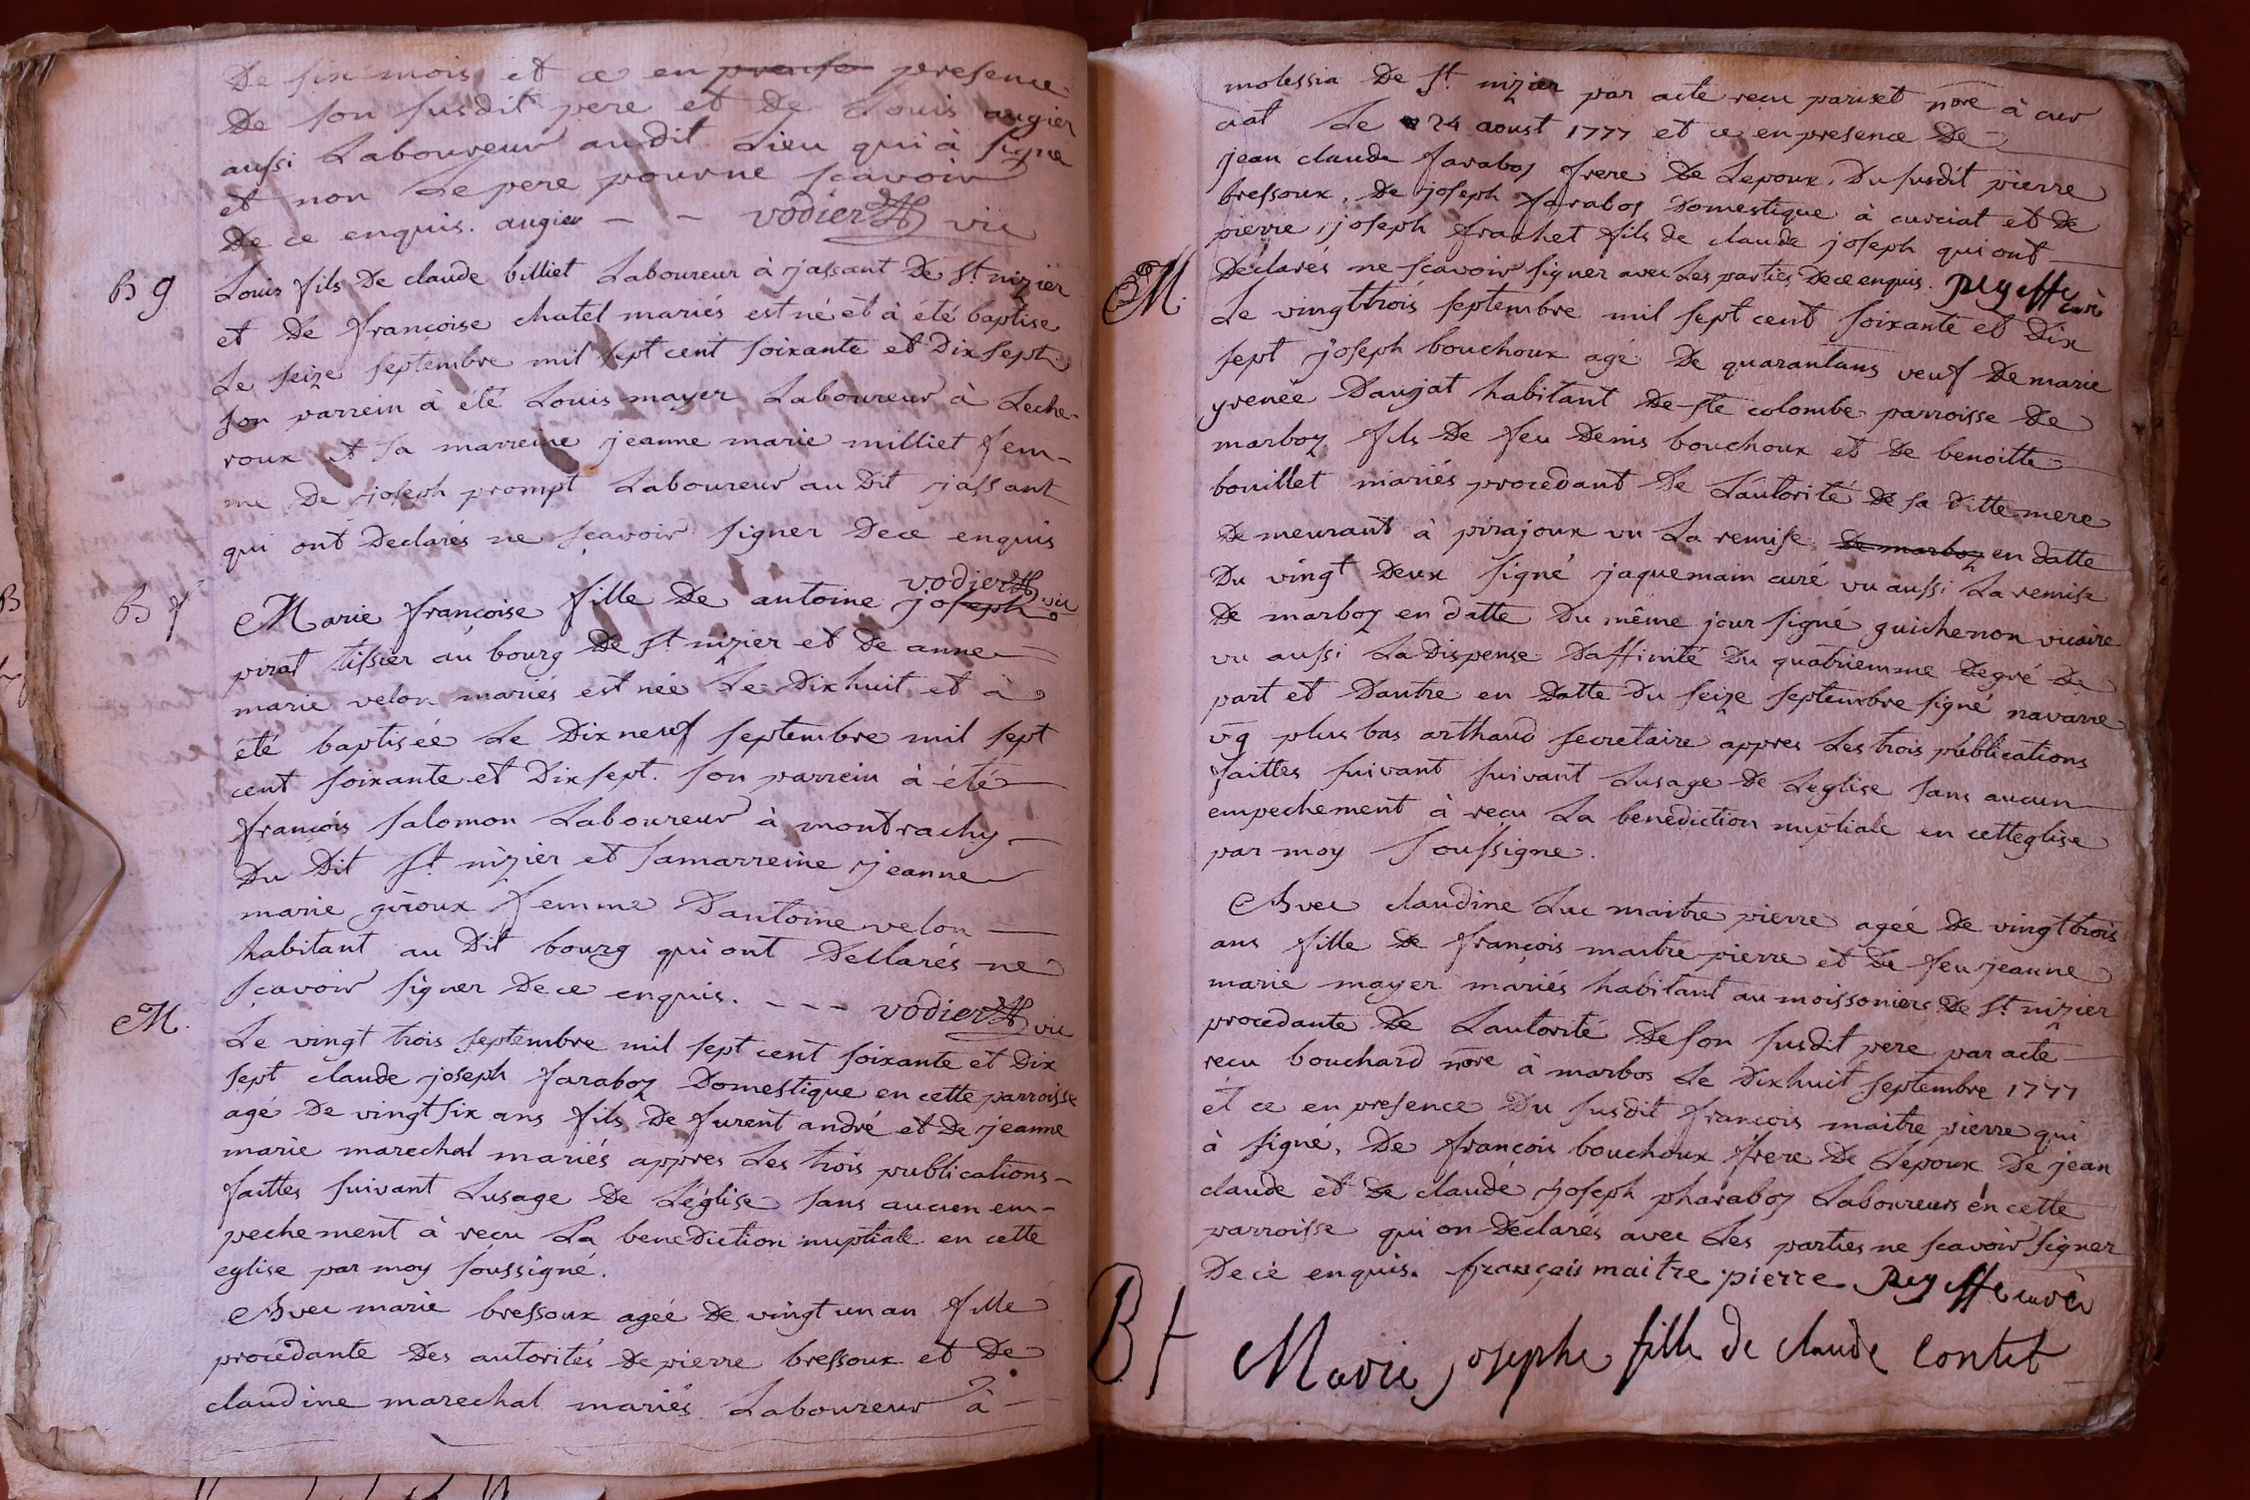 De six mois et ce en presence
De son susdit pere et De Louis augier
aussi Laboureur audit Lieu qui à signé
et non Le pere pour ne scavoir
De ce enquis. augier - - vodier vic
B g Louis fils De claude billiet Laboureur à jassant De St. nizier
et De françoise chatel mariés est né et à été baptise
Le seize septembre mil sept cent soixante et Dix sept
son parrein à été Louis mayer Laboureur à Leche-
roux et sa marreine jeanne marie milliet fem-
me De joseph prompt Laboureur au Dit jassant
qui ont Declarés ne sçavoir signer De ce enquis
vodier vic
B f Marie françoise fille De antoine joseph
pirat tissier au bourg De St nizier et De anne
marie velon mariés est née Le Dixhuit et à
été baptisée Le Dix neuf septembre mil sept
cent soixante et Dixsept. son parrein à été
françois salomon Laboureur à montrachy
Du Dit St. nizier et sa marreine jeanne
marie giroux femme D'antoine velon
habitant au Dit bourg qui ont Dellarés ne
sçavoir signer De ce enquis. - - - vodier vic
M. Le vingt trois septembre mil sept cent soixante et Dix
sept claude joseph faraboz Domestique en cette parroisse
agé De vingt six ans fils De furent andré et De jeanne
marie marechal mariés appres Les trois publications
faittes suivant Lusage De Léglise sans aucun em-
pechement à recu La benediction nuptiale en cette
eglise par moy soussigné.
Avec marie bressoux ageé De vingt un an fille
procédante Des autorités De pierre bressoux et De
claudine marechal mariés Laboureur à
molessia De St. nizier par acte recu pariset nore à cur
ciat Le 24 aoust 1777 et ce en presence De
jean claude faraboz frere De Lepoux, Du susdit pierre
bressoux, De joseph faraboz Domestique à curciat et De
pierre joseph frachet fils de claude joseph qui ont
Déclarés ne scavoir signer avec Les parties De ce enquis. puyeffe curé
M. Le vingttrois septembre mil sept cent soixante et Dix
sept joseph bouchoux agé De quarantans veuf De marie
yreneé Daujat habitant De ste colombe parroisse De
marboz fils De feu Denis bouchoux et De benoitte
bouillet mariés procedant De L'autorité De sa Ditte mere
Demeurant à pirajoux vu La remise De marboz en datte
Du vingt Deux signé jaquemain curé vu aussi La remise
De marboz en datte Du même jour signé guichenon vicaire
vu aussi La Dispense D'affinité Du quatriemme Degré De
part et Dautre en Datte Du seize septembre signé navarre
vg plus bas arthaud secretaire appres Les trois publications
faittes suivant suivant Lusage De Leglise sans aucun
empechement à reçu La benédiction nuptiale en cetteglise
par moy soussigne.
Avec claudine Luc maitre pierre agéé De vingttrois
ans fille De françois maitre pierre et De feu jeanne
marie mayer mariés habitant au moissoniers De St nizier
procedante De Lautorité De son susdit pere par acte
recu bouchard nore à marbos Le Dixhuit septembre 1777
et ce en presence Du susdit françois maitre pierre qui
à signé, De françois bouchoux frere De Lepoux De jean
claude et De claude joseph pharaboz Laboureurs en cette
parroisse qui on Déclarés avec Les parties ne scavoir signer
De ce enquis. françois maitre pierre puyeffe curé
B f Marie josephe fille de claude Contet